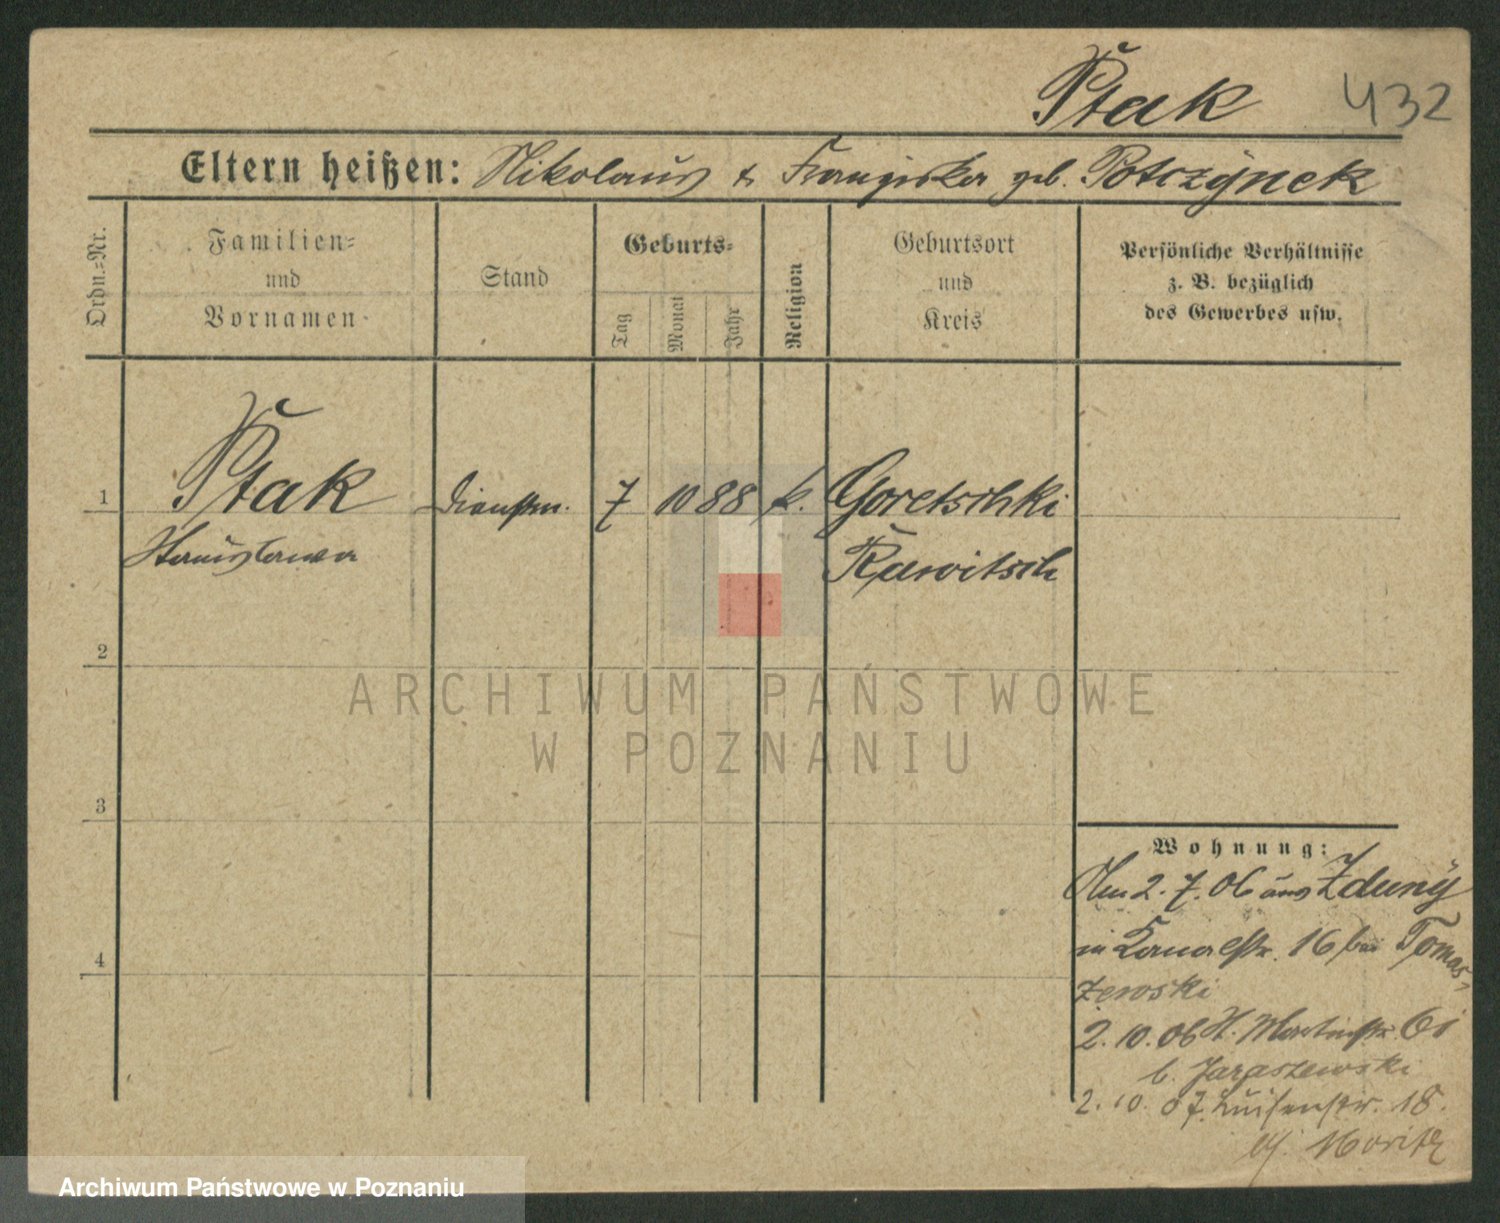 Ptak 432
Eltern heißen: Nikolaus & Franziska geb. Potczÿnek
Ordn.-Nr.
Familien-
und
Vornamen
Stand
Geburts-
Tag
Monat
Jahr
Religion
Geburtsort
und
Kreis
Persönliche Verhältnisse
z. B. bezüglich
des Gewerbes usw.
1 Ptak Dienstm. 7 10 88 k. Goretschki
Stanislawa Rawitsch
2
ARCHIWUM PAŃSTWOWE
W POZNANIU
3
Wohnung:
Am 2. 7. 06 aus Zdunÿ
in Kanalstr. 16 bei Tomas-
zewski
2. 10. 06 St. Martinstr. 61
b. Jaraszewski
2. 10. 07. Luisenstr. 18.
Moritz
4
Archiwum Państwowe w Poznaniu